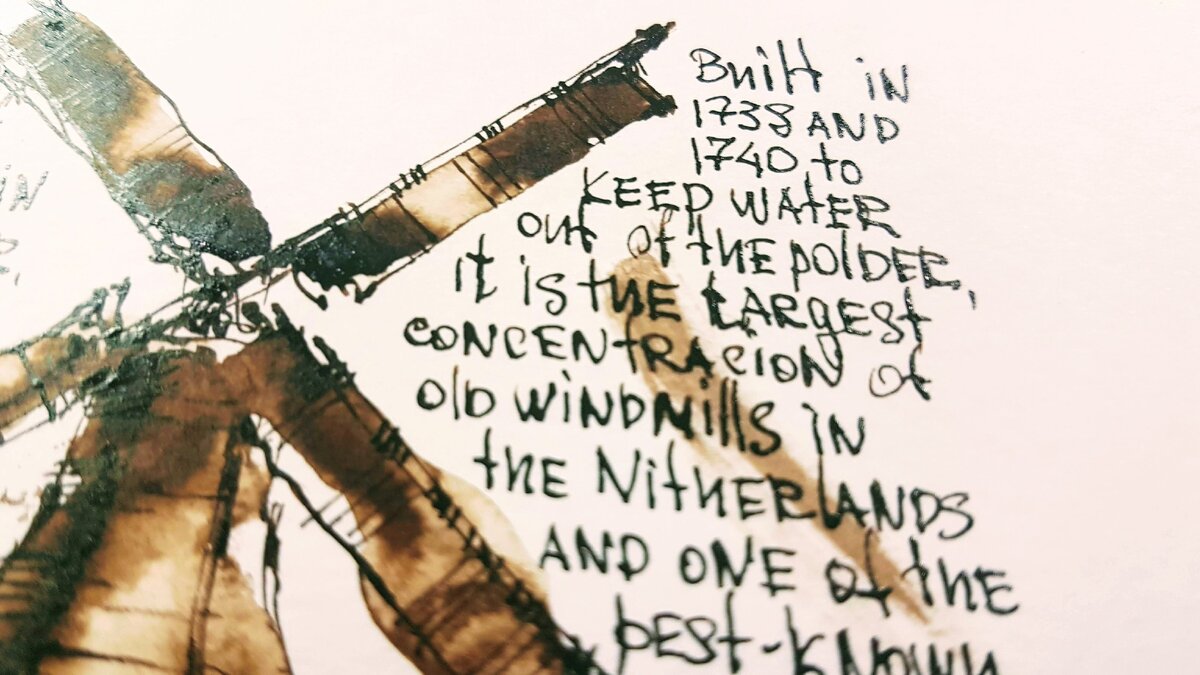 Built in
1738 AND
1740 to
KEEP WATER
out of the polDER,
it is the LARGEST
CONCENTRACION of
old WINDMills IN
the NitHERLANDS
AND ONE of the
best-KNOWN